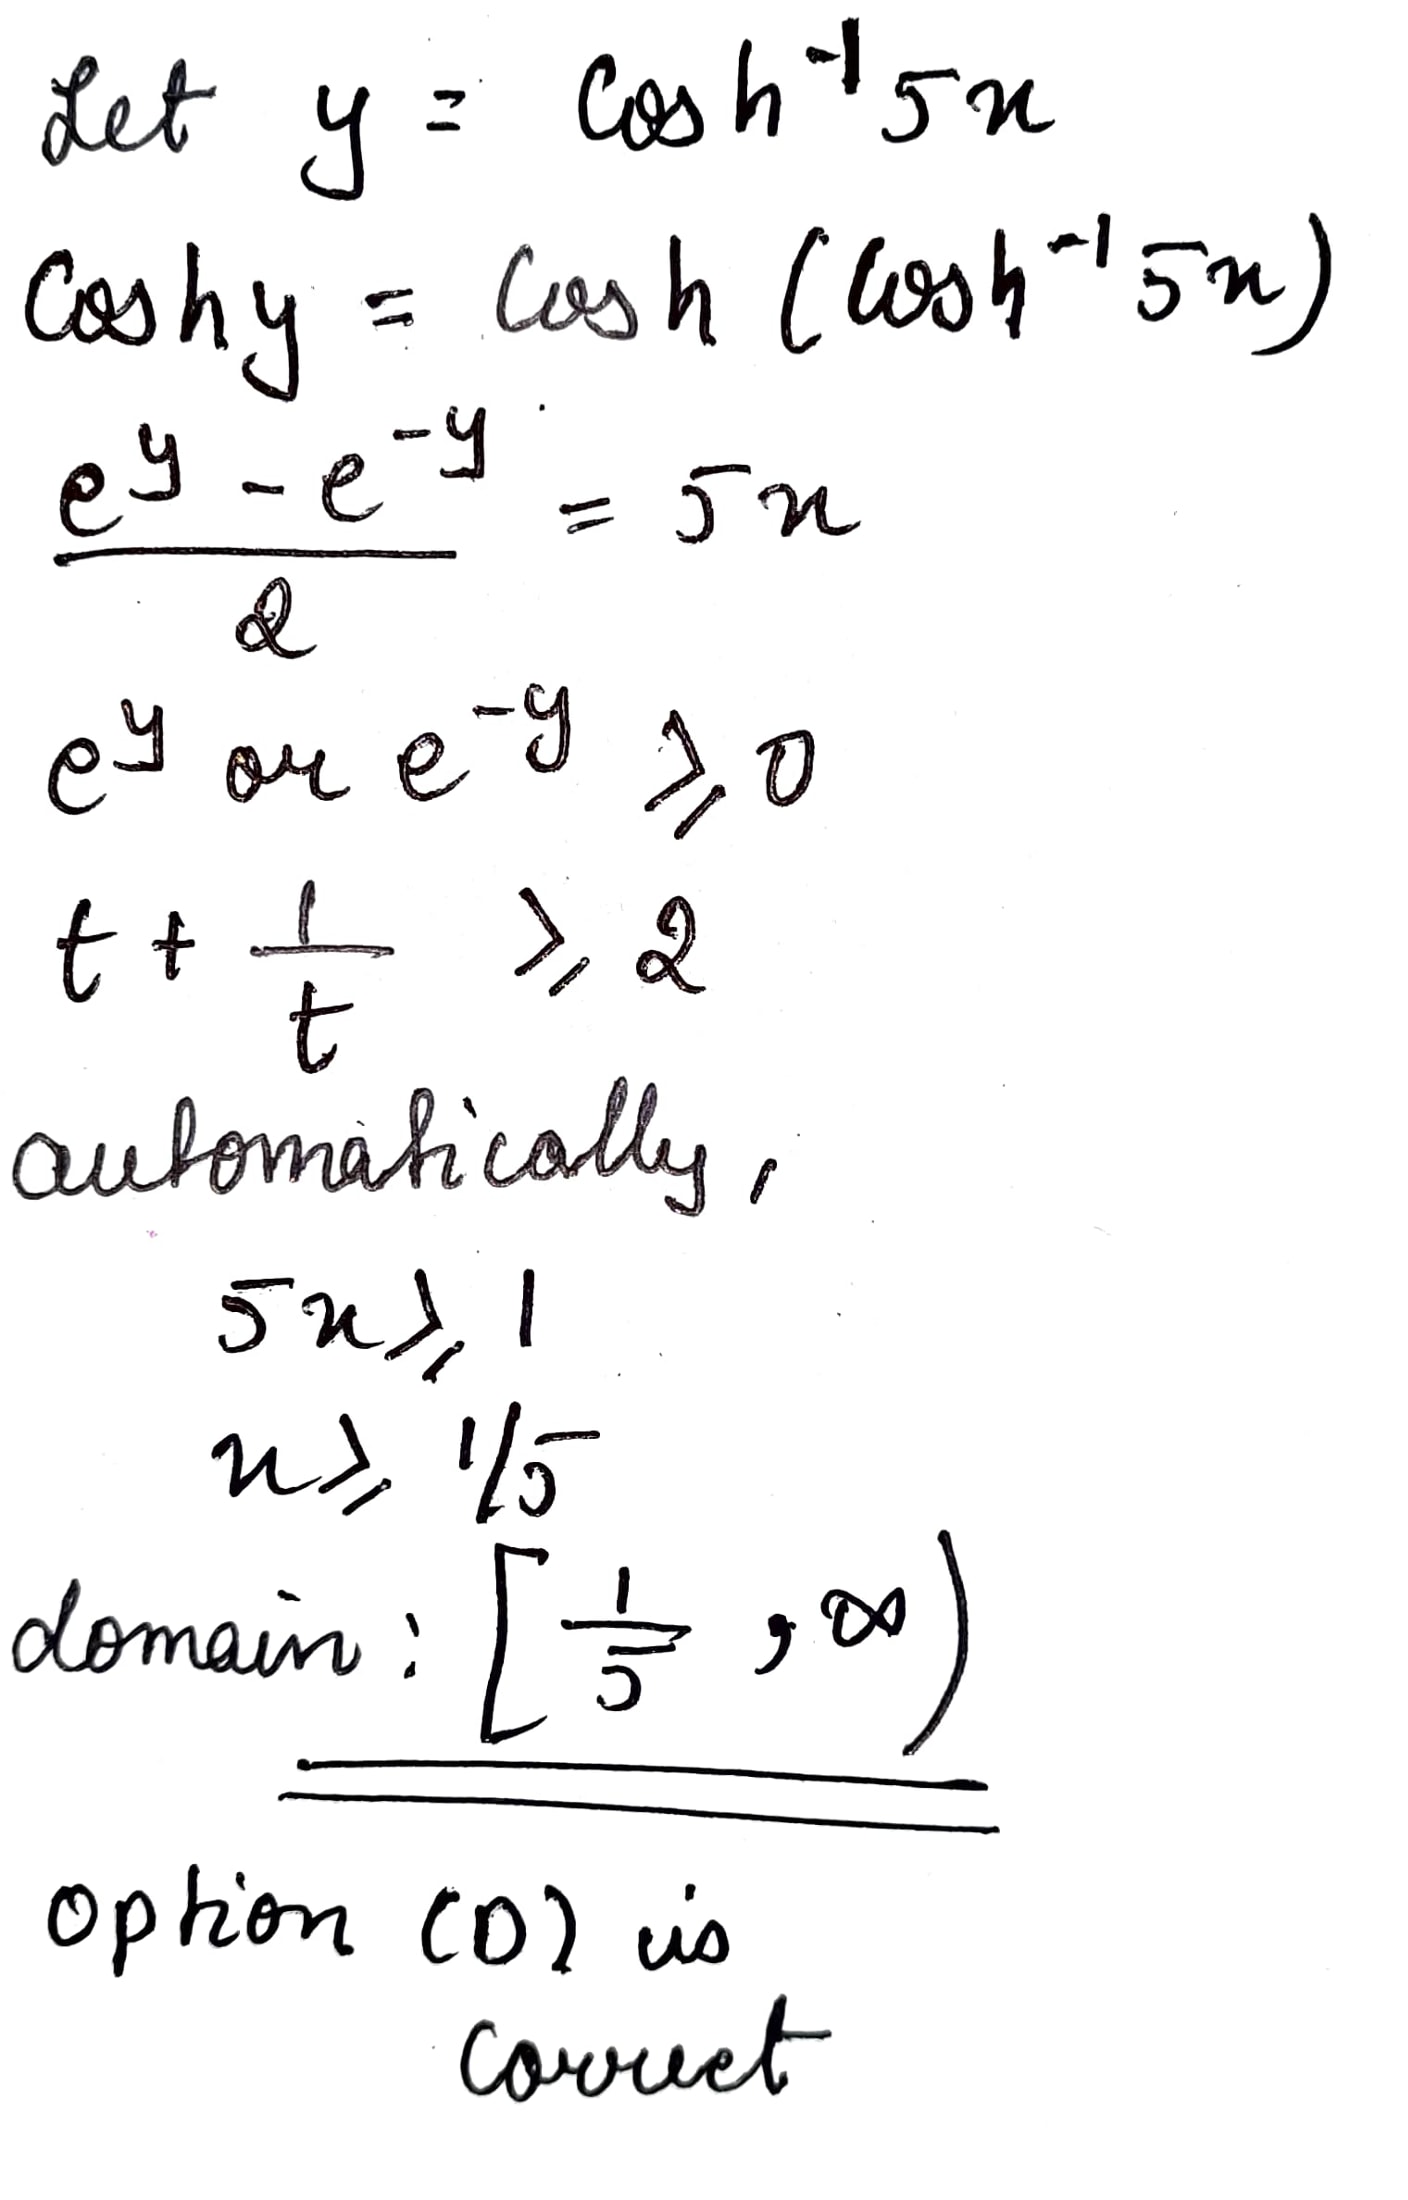 Let y = Cosh⁻¹ 5x
Cosh y = Cosh (Cosh⁻¹ 5x)
(e^y - e^-y)/2 = 5x
e^y or e^-y ⩾ 0
t + 1/t ⩾ 2
automatically,
5x ⩾ 1
x ⩾ 1/5
domain : [1/5, ∞)
option (D) is
correct